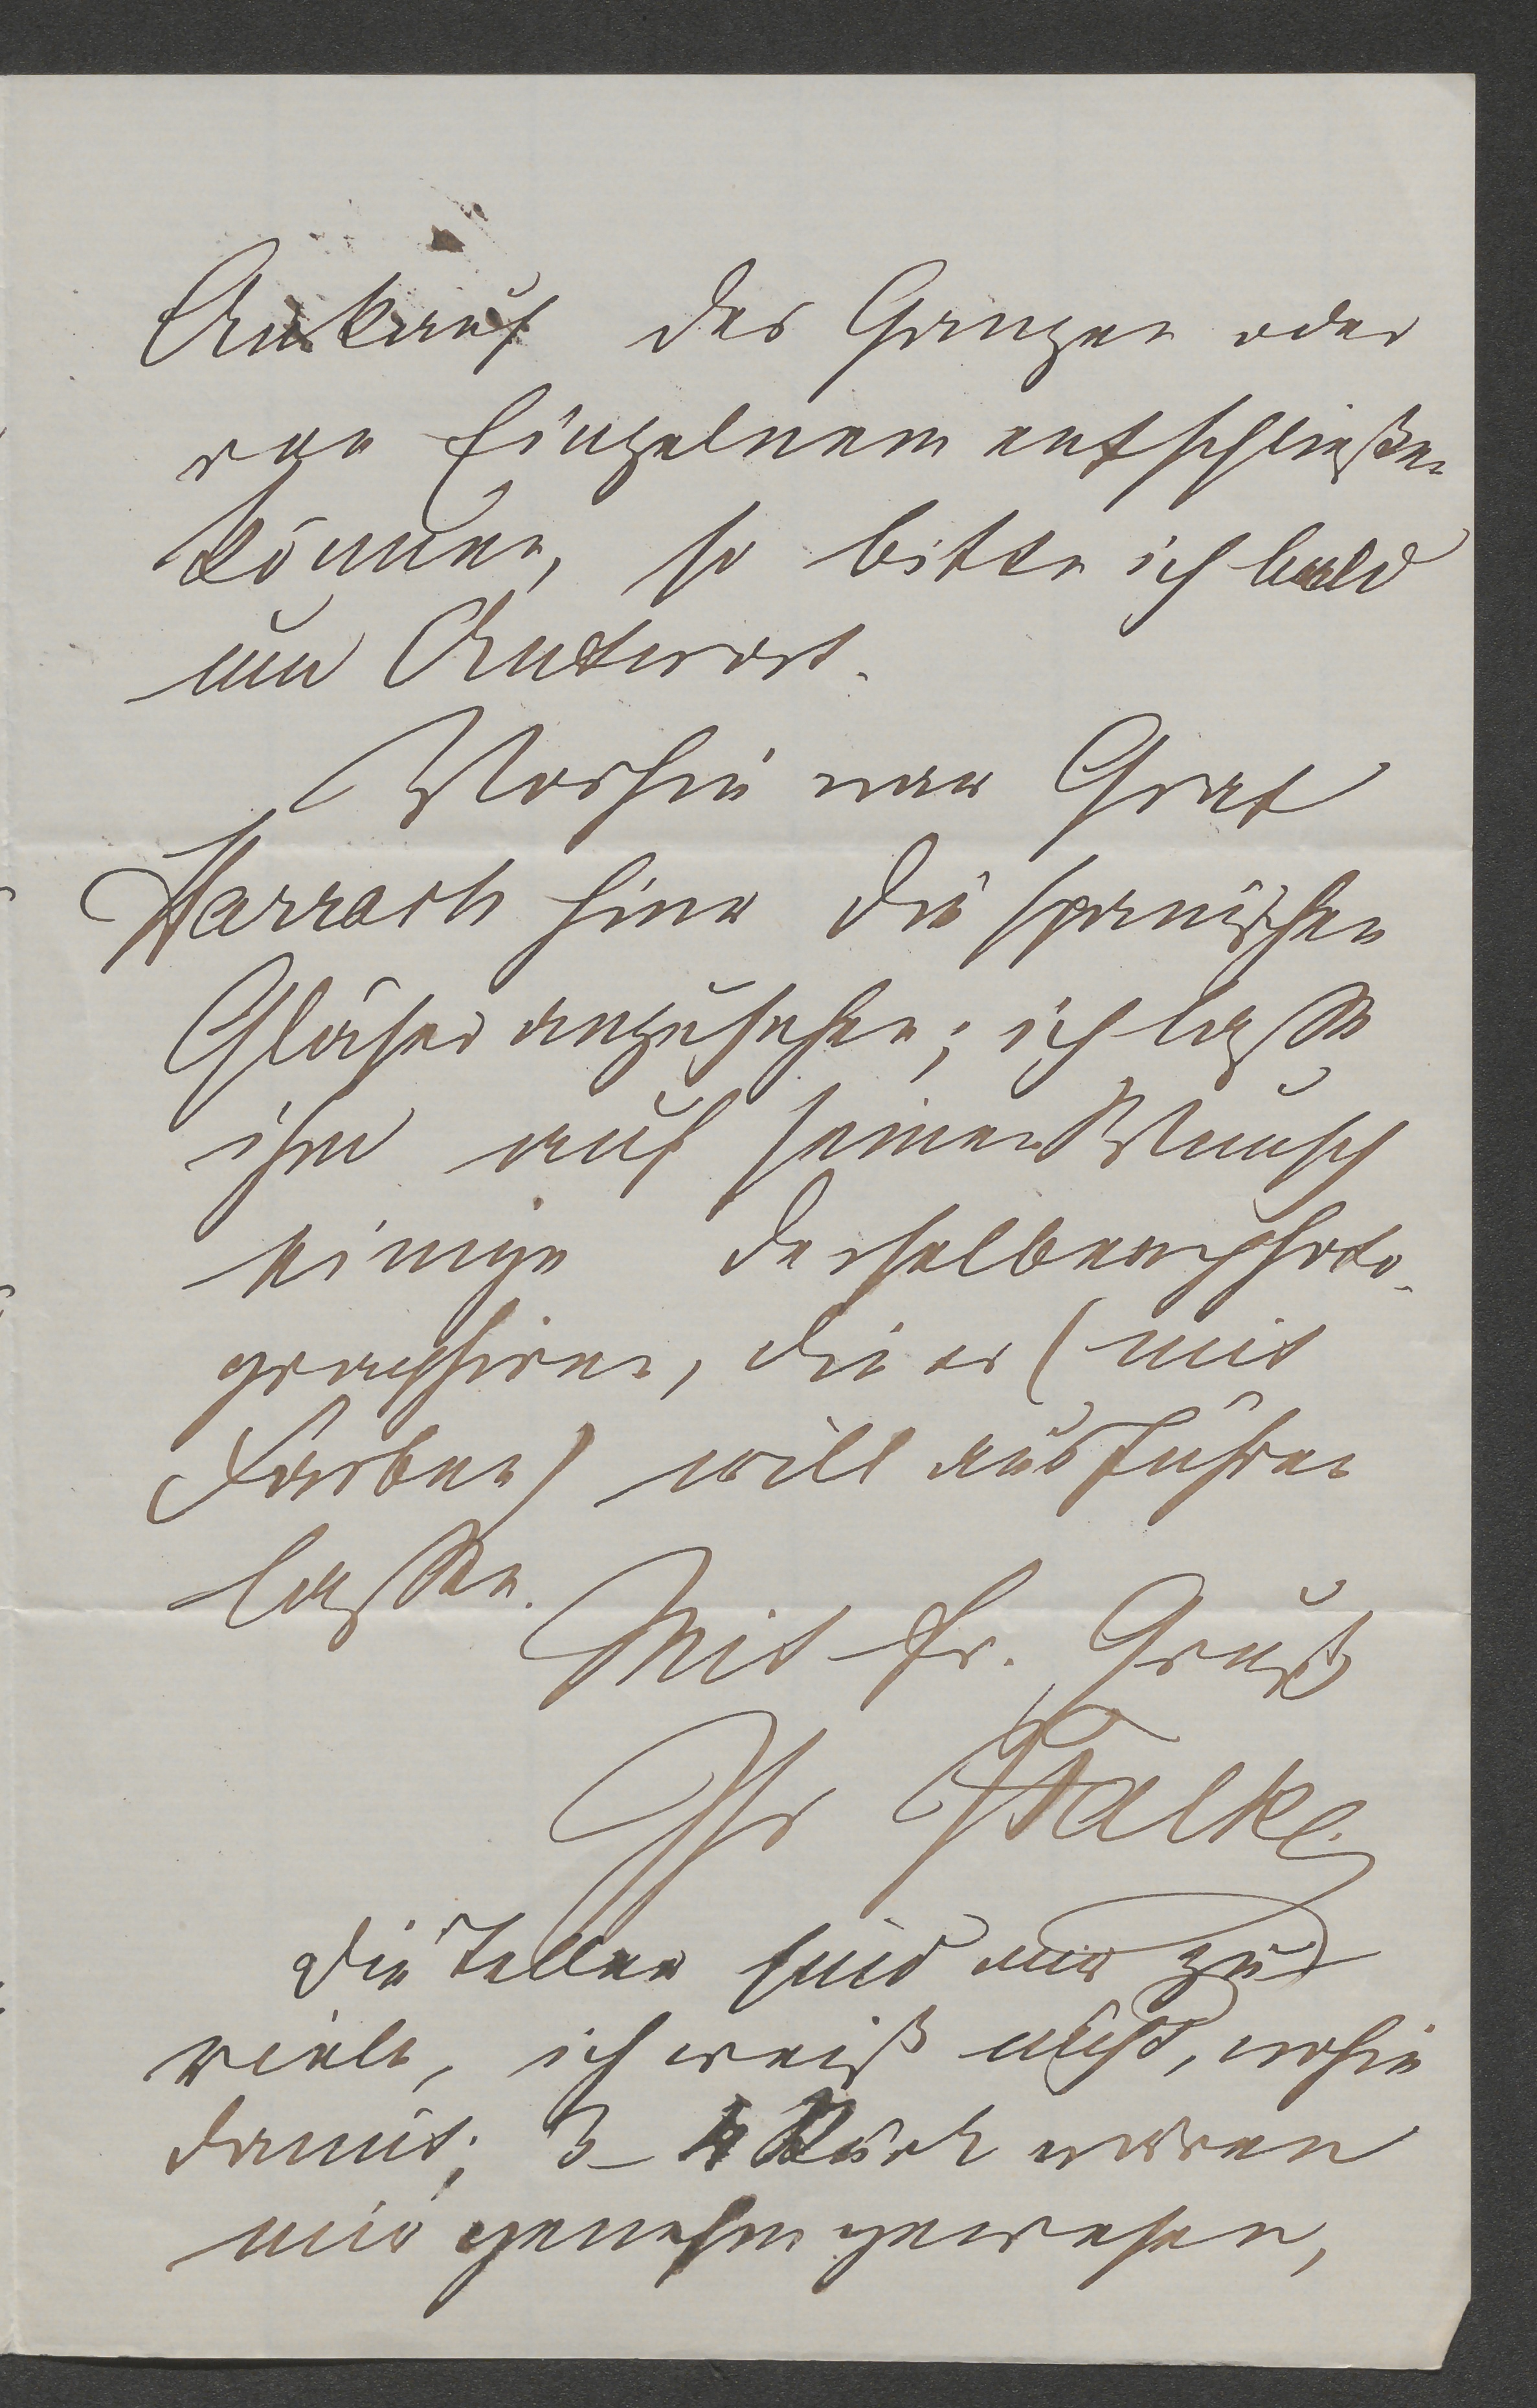 Ankauf des Ganzen oder
von Einzelnem entschließen
können, so bitte ich bald
um Antwort.
Vorhin war Graf
Harrach hier die spanischen
Gläser anzusehen; ich lasse
ihm auf seinen Wunsch
einige derselben photo-
graphiren, die er (mit
Farben) will ausführen
lassen.
Mit fr. Gruß
Ihr JFalke
Die Teller sind mir zu
viele, ich weiß nicht, wohin
damit; 3-4 Stück waren
mir genehm gewesen,